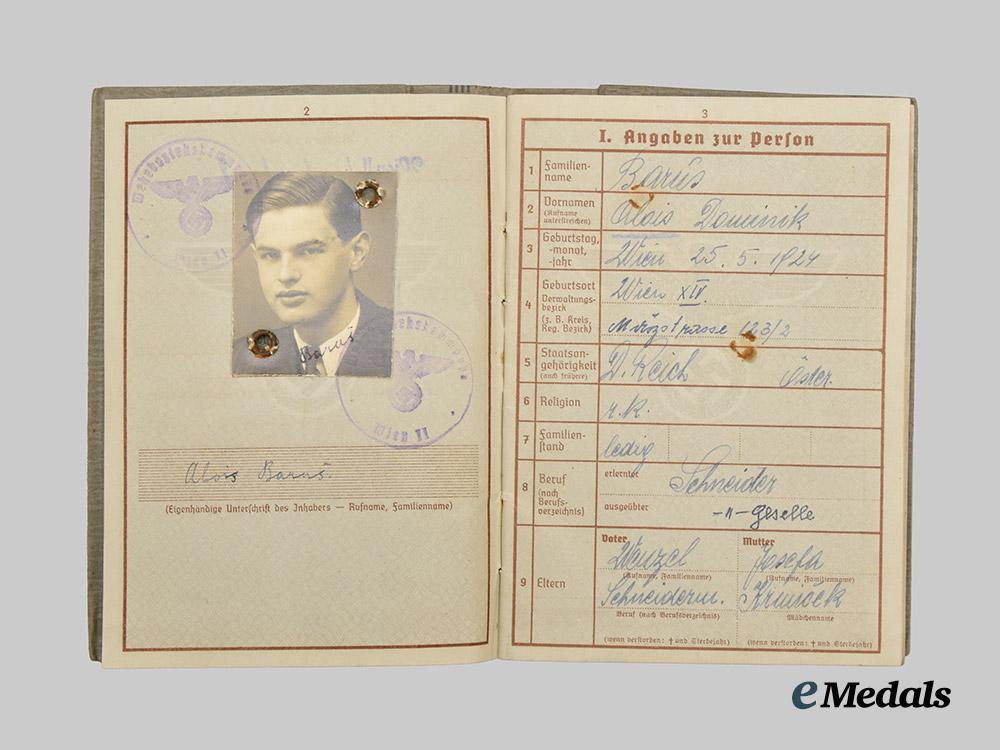 2
Wehrbezirkskommando
Wien II
Baruš
Wien II
Alois Baruš.
(Eigenhändige Unterschrift des Inhabers — Rufname, Familienname)
3
I. Angaben zur Person
1 Familien-name Barúš
2 Vornamen (Rufname unterstreichen) Alois Dominik
3 Geburtstag, -monat, -jahr Wien 25. 5. 1924
4 Geburtsort Wien XIV.
Verwaltungsbezirk (z. B. Kreis, Reg. Bezirk) Märzstrasse 123/2
5 Staatsangehörigkeit (auch frühere) D. Reich Öster.
6 Religion r.k.
7 Familienstand ledig
8 Beruf (nach Berufsverzeichnis) erlernter Schneider
ausgeübter -"- geselle
9 Eltern
Vater Mutter
Wenzel Josefa
(Rufname, Familienname) (Rufname, Familienname)
Schneiderm.
Beruf (nach Berufsverzeichnis) Mädchenname
(wenn verstorben: † und Sterbejahr) (wenn verstorben: † und Sterbejahr)
eMedals